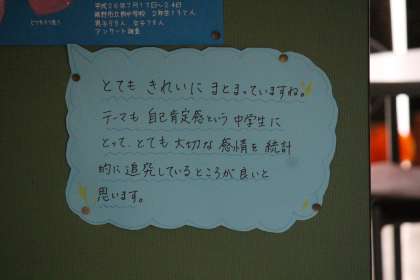 平成26年7月17日~24日
アンケート調査
とても きれいに まとまっていますね。
テーマも 自己肯定感という中学生に
とって、とても大切な感情を統計
的に追究しているところが良いと
思います。